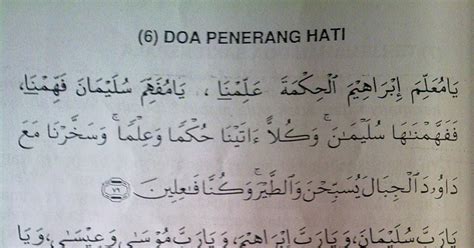 (6) DOA PENERANG HATI
يَامُعَلِّمَ إِبْرَاهِيْمَ الْحِكْمَةَ عَلِّمْنَا ، يَامُفَهِّمَ سُلَيْمَانَ فَهِّمْنَا،
فَفَهَّمْنَـٰهَا سُلَيْمَـٰنَ ۚ وَكُلاًّ ءَاتَيْنَا حُكْمًا وَعِلْمًا ۚ وَسَخَّرْنَا مَعَ
دَاوُدَ الْجِبَالَ يُسَبِّحْنَ وَالطَّيْرَ ۚ وَكُنَّا فَـٰعِلِينَ ۝٧٩
يَارَبَّ سُلَيْمَانَ، وَيَارَبَّ إِبْرَاهِيْمَ، وَيَارَبَّ مُوْسَى وَعِيْسَى، وَيَا